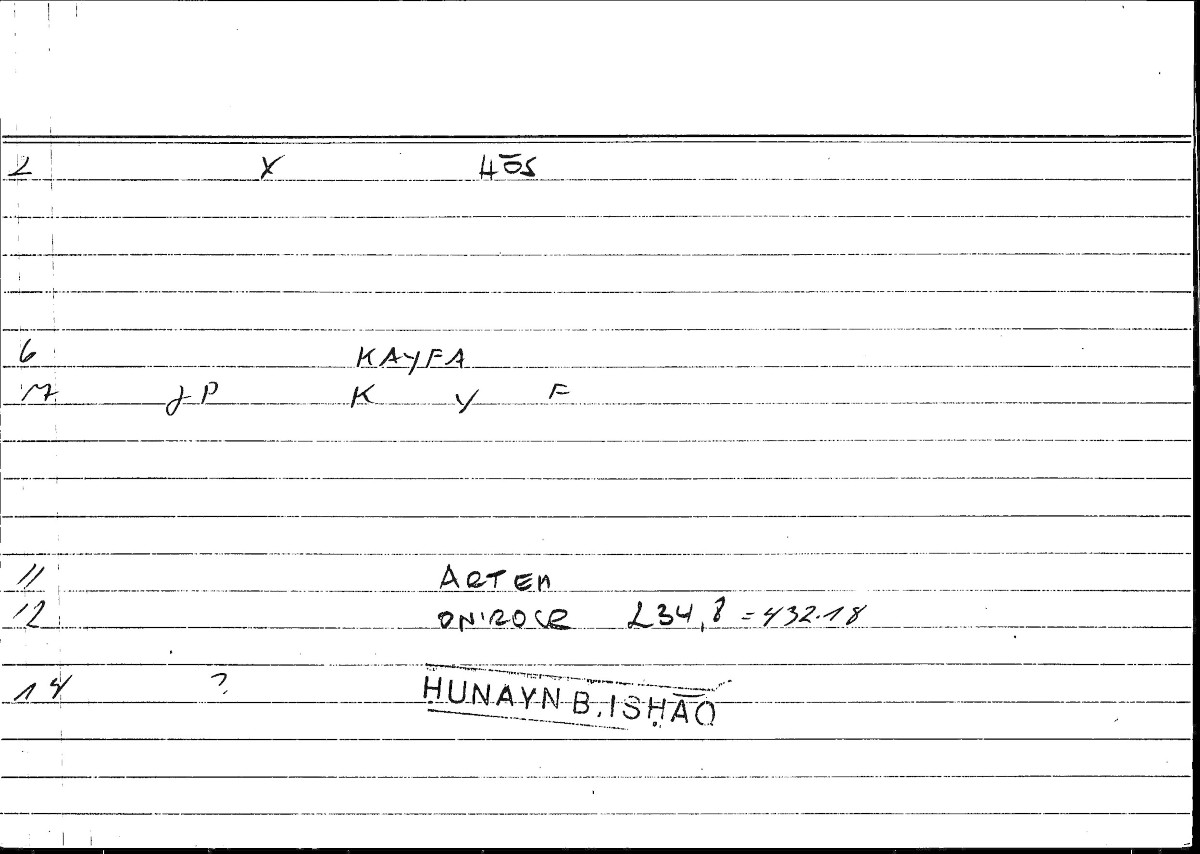 2 X hōs
6 KAYFA
7 JP K Y F
11 ARTEM
12 ONIROCR 234,8 = 432.18
14 ? ḤUNAYN B. ISḤĀQ